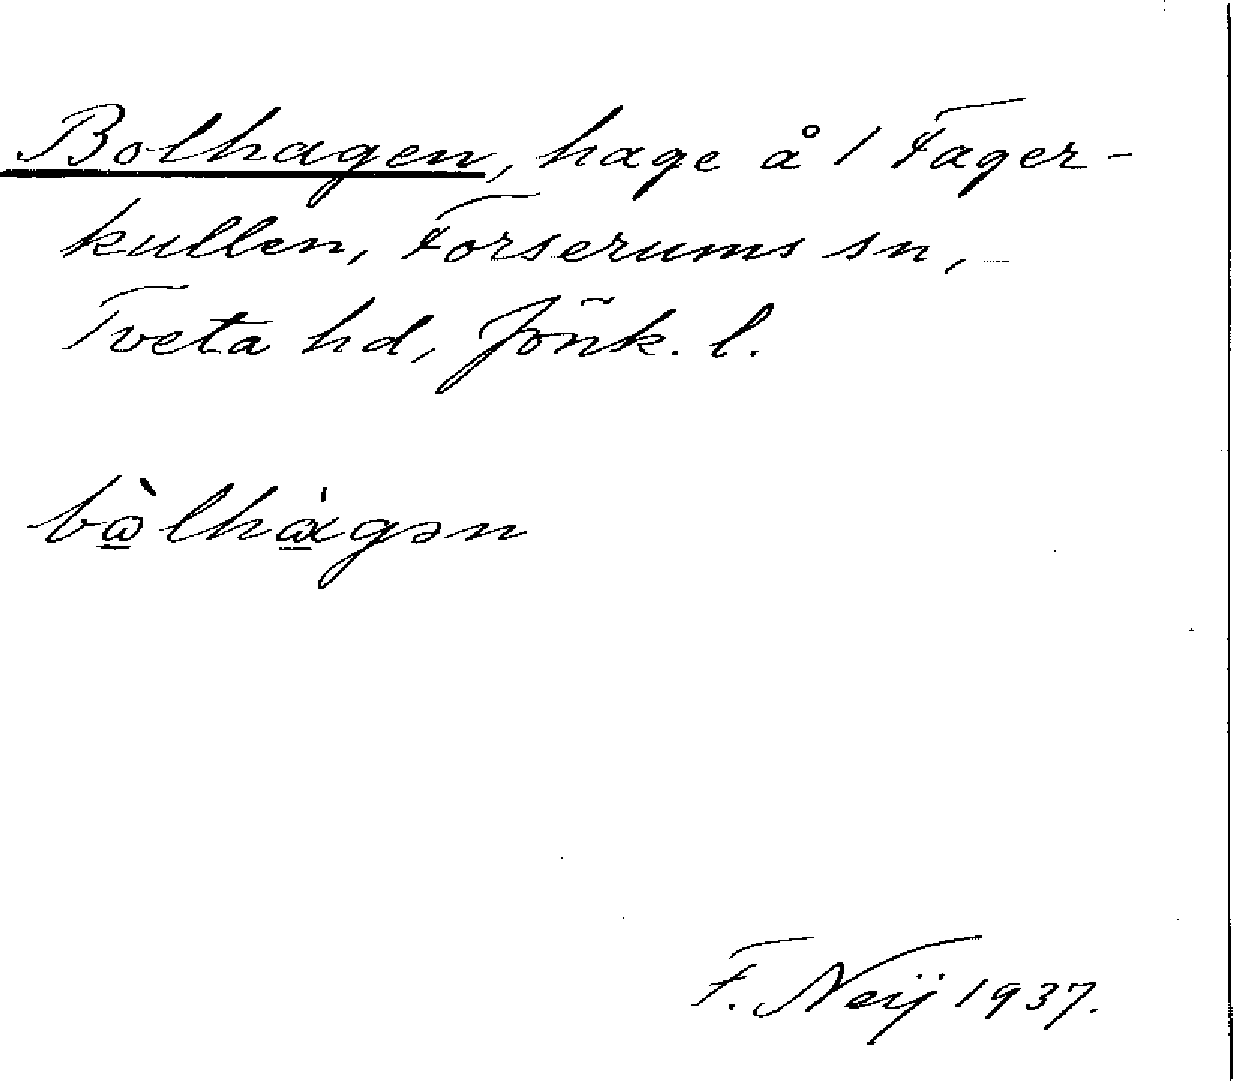 Bolhagen, hage å 1 Fager-
kullen, Forserums sn,
Tveta hd, Jönk. l.
bòlhàgən
F. Neij 1937.